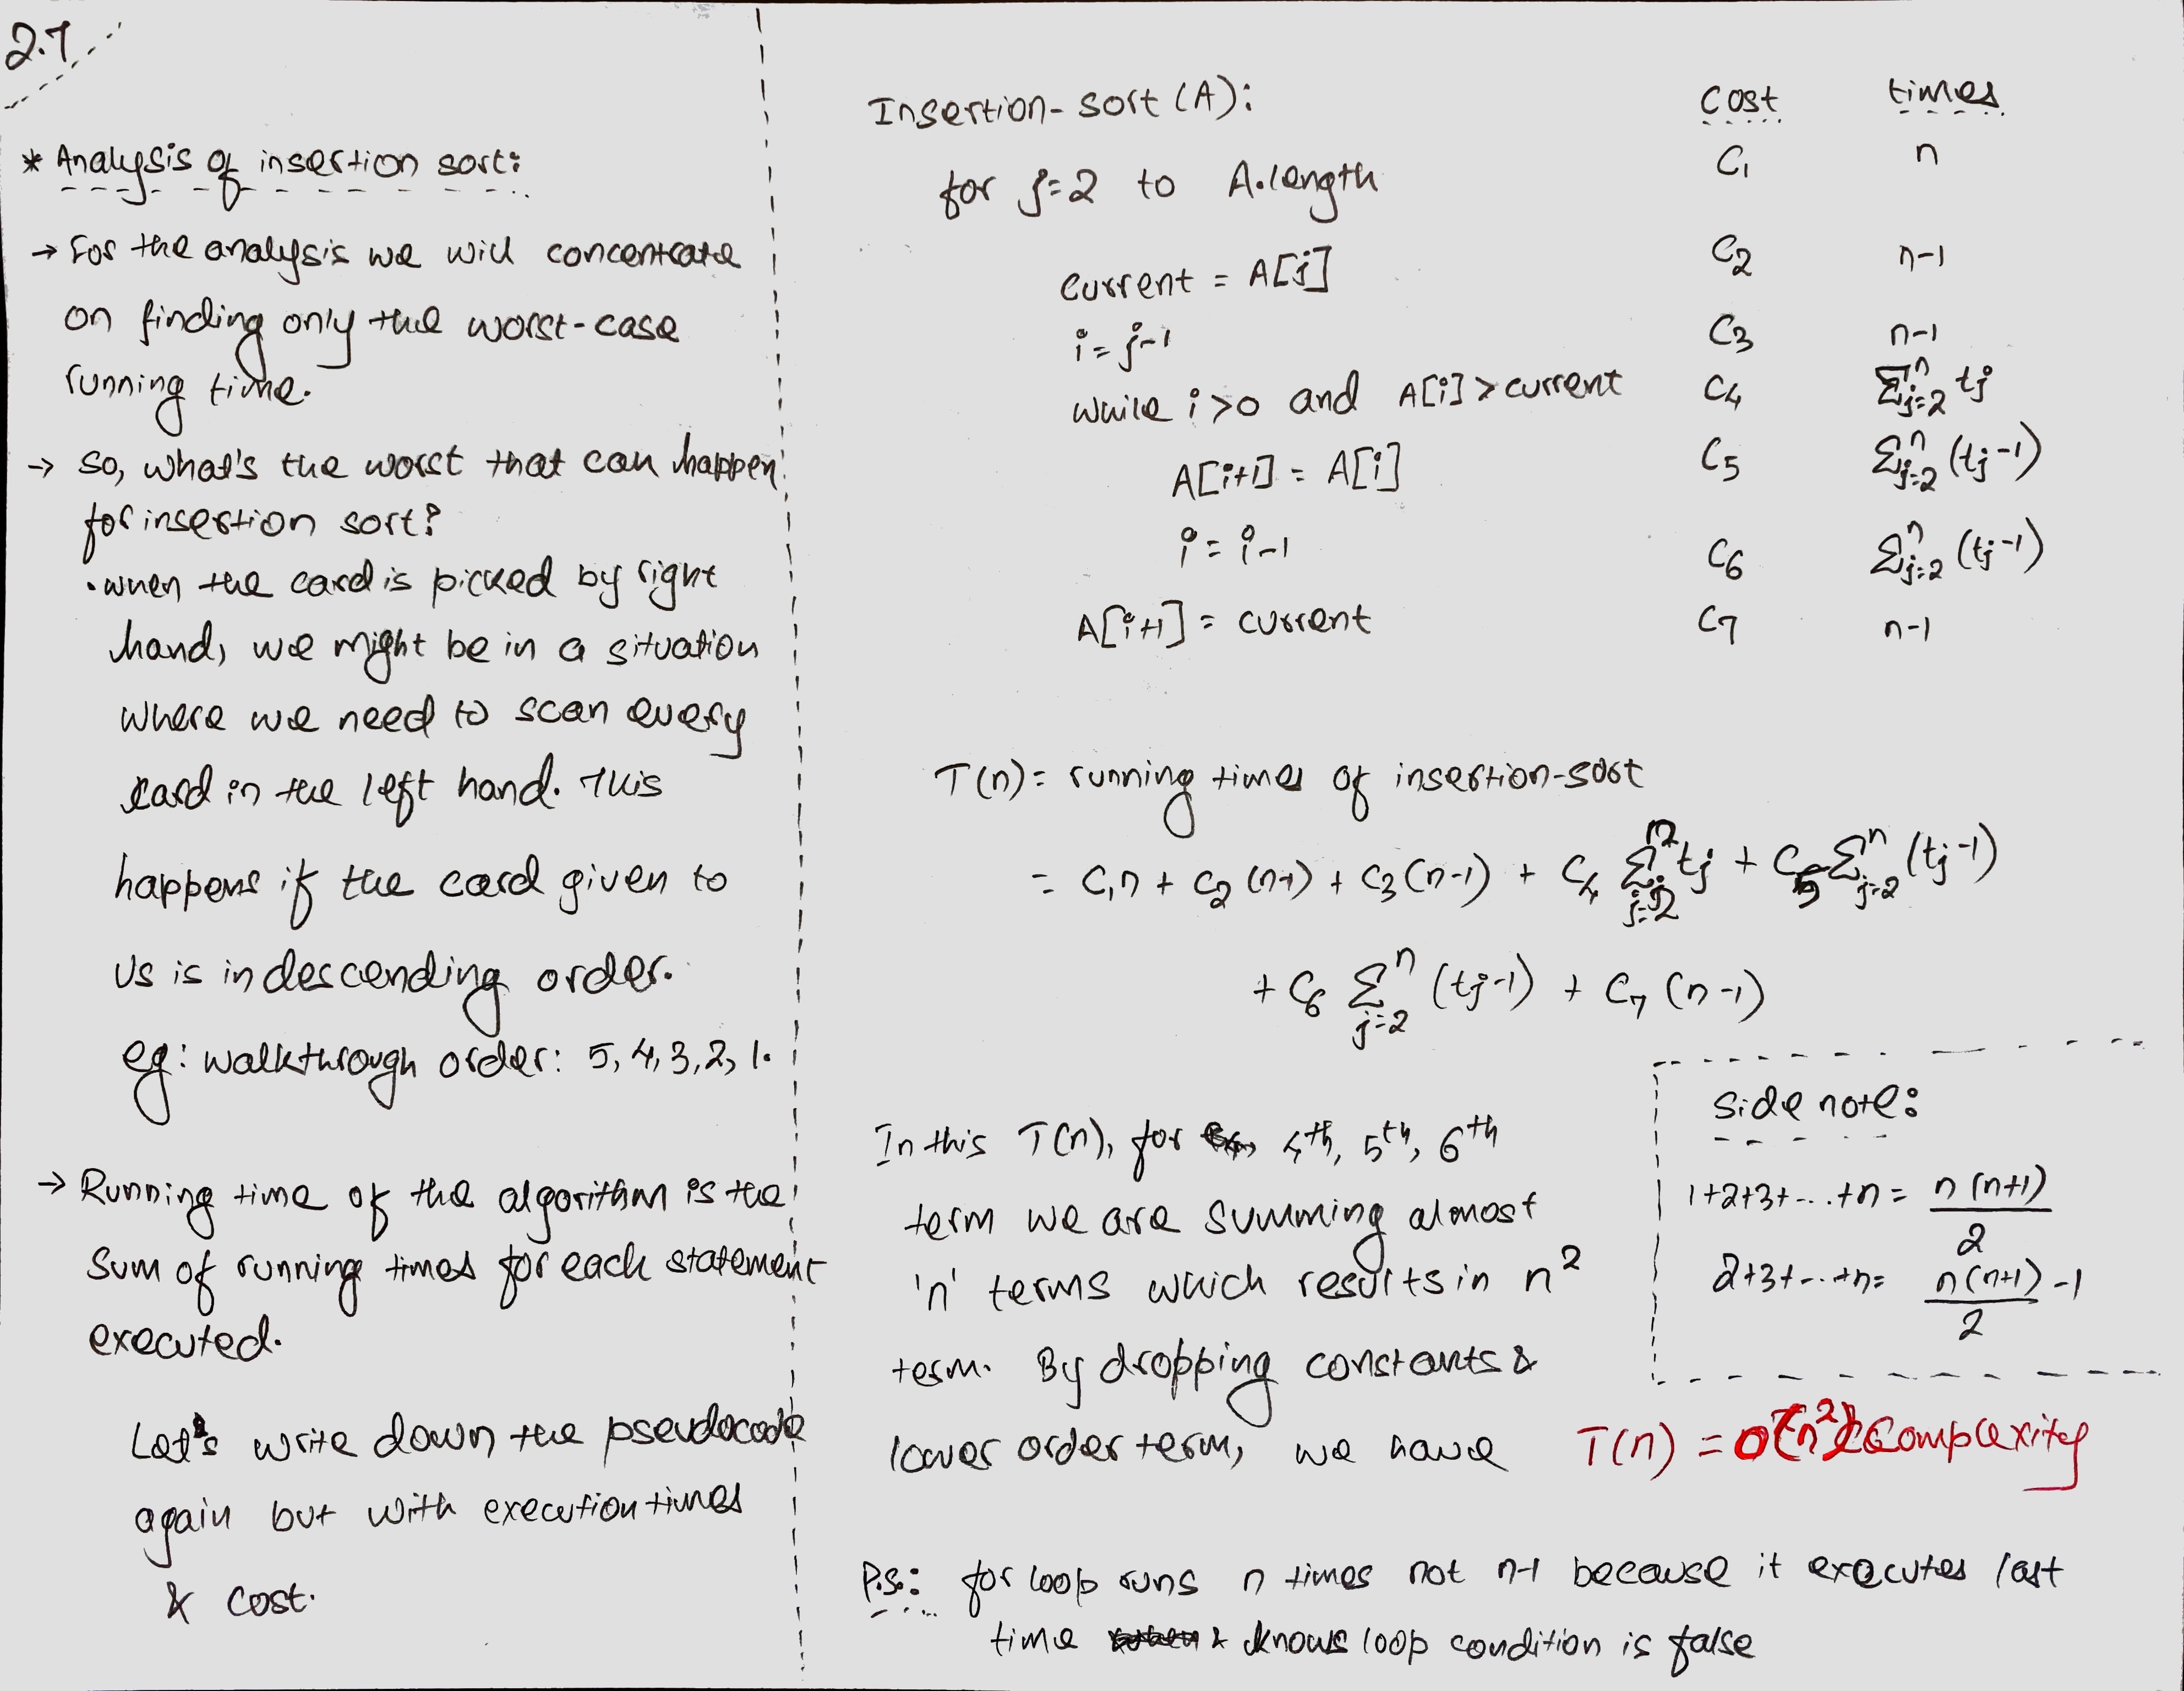 2.7
* Analysis of insertion sort:
→ For the analysis we will concentrate
on finding only the worst-case
running time.
→ so, what's the worst that can happen
for insertion sort?
• when the card is picked by right
hand, we might be in a situation
where we need to scan every
card in the left hand. This
happens if the card given to
us is in descending order.
eg: walkthrough order: 5, 4, 3, 2, 1.
→ Running time of the algorithm is the
sum of running times for each statement
executed.
Let's write down the pseudocode
again but with execution times
& cost.
Insertion-sort (A): cost times
for j=2 to A.length C₁ n
current = A[j] C₂ n-1
i = j-1 C₃ n-1
while i>0 and A[i] > current C₄ Σⁿj=2 tj
A[i+1] = A[i] C₅ Σⁿj=2 (tj-1)
i = i-1 C₆ Σⁿj=2 (tj-1)
A[i+1] = current C₇ n-1
T(n) = running times of insertion-sort
= C₁n + C₂(n-1) + C₃(n-1) + C₄ Σⁿj=2 tj + C₅ Σⁿj=2 (tj-1)
+ C₆ Σⁿj=2 (tj-1) + C₇ (n-1)
In this T(n), for 4th, 5th, 6th
term we are summing almost
'n' terms which results in n²
term. By dropping constants &
lower order term, we have T(n) = O(n²) Complexity
side note:
1+2+3+...+n = n(n+1)/2
2+3+...+n = n(n+1)/2 -1
P.s.: for loop runs n times not n-1 because it executes last
time & knows loop condition is false